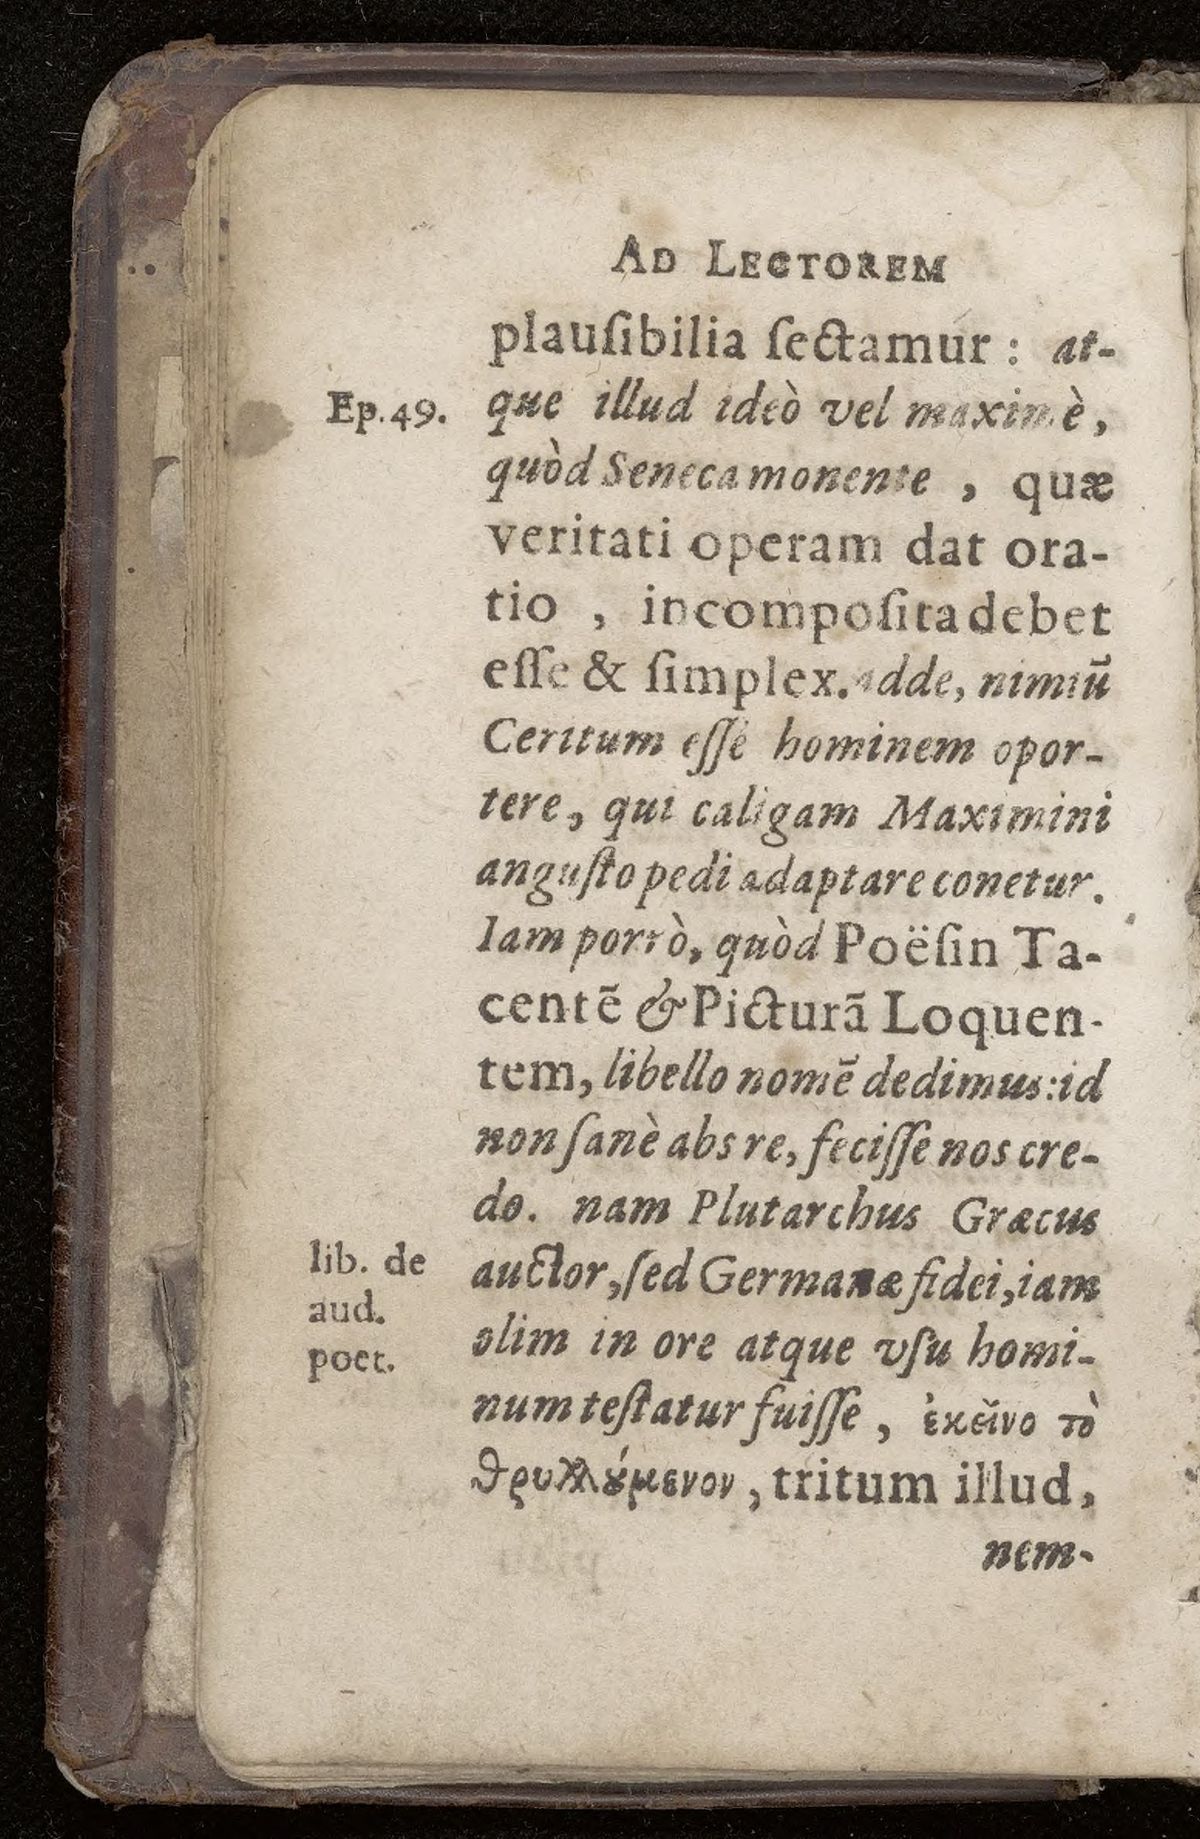 AD LECTOREM
plauſibilia ſectamur : at-
Ep.49.
que illud ideò vel maximè,
quòd Seneca monente , quæ
veritati operam dat ora-
tio , incompoſita debet
eſſe & ſimplex. adde, nimiũ
Ceritum eſſe hominem opor-
tere, qui caligam Maximini
anguſto pedi adaptare conetur.
Iam porrò, quòd Poëſin Ta-
centẽ & Picturã Loquen-
tem, libello nomẽ dedimus: id
non ſanè abs re, feciſſe nos cre-
do. nam Plutarchus Græcus
lib. de
aud.
poet.
auctor, ſed Germanæ fidei, iam
olim in ore atque vſu homi-
num teſtatur fuiſſe , ἐκεῖνο τὸ
ϑρυλλȣ́μενον, tritum illud,
nem-